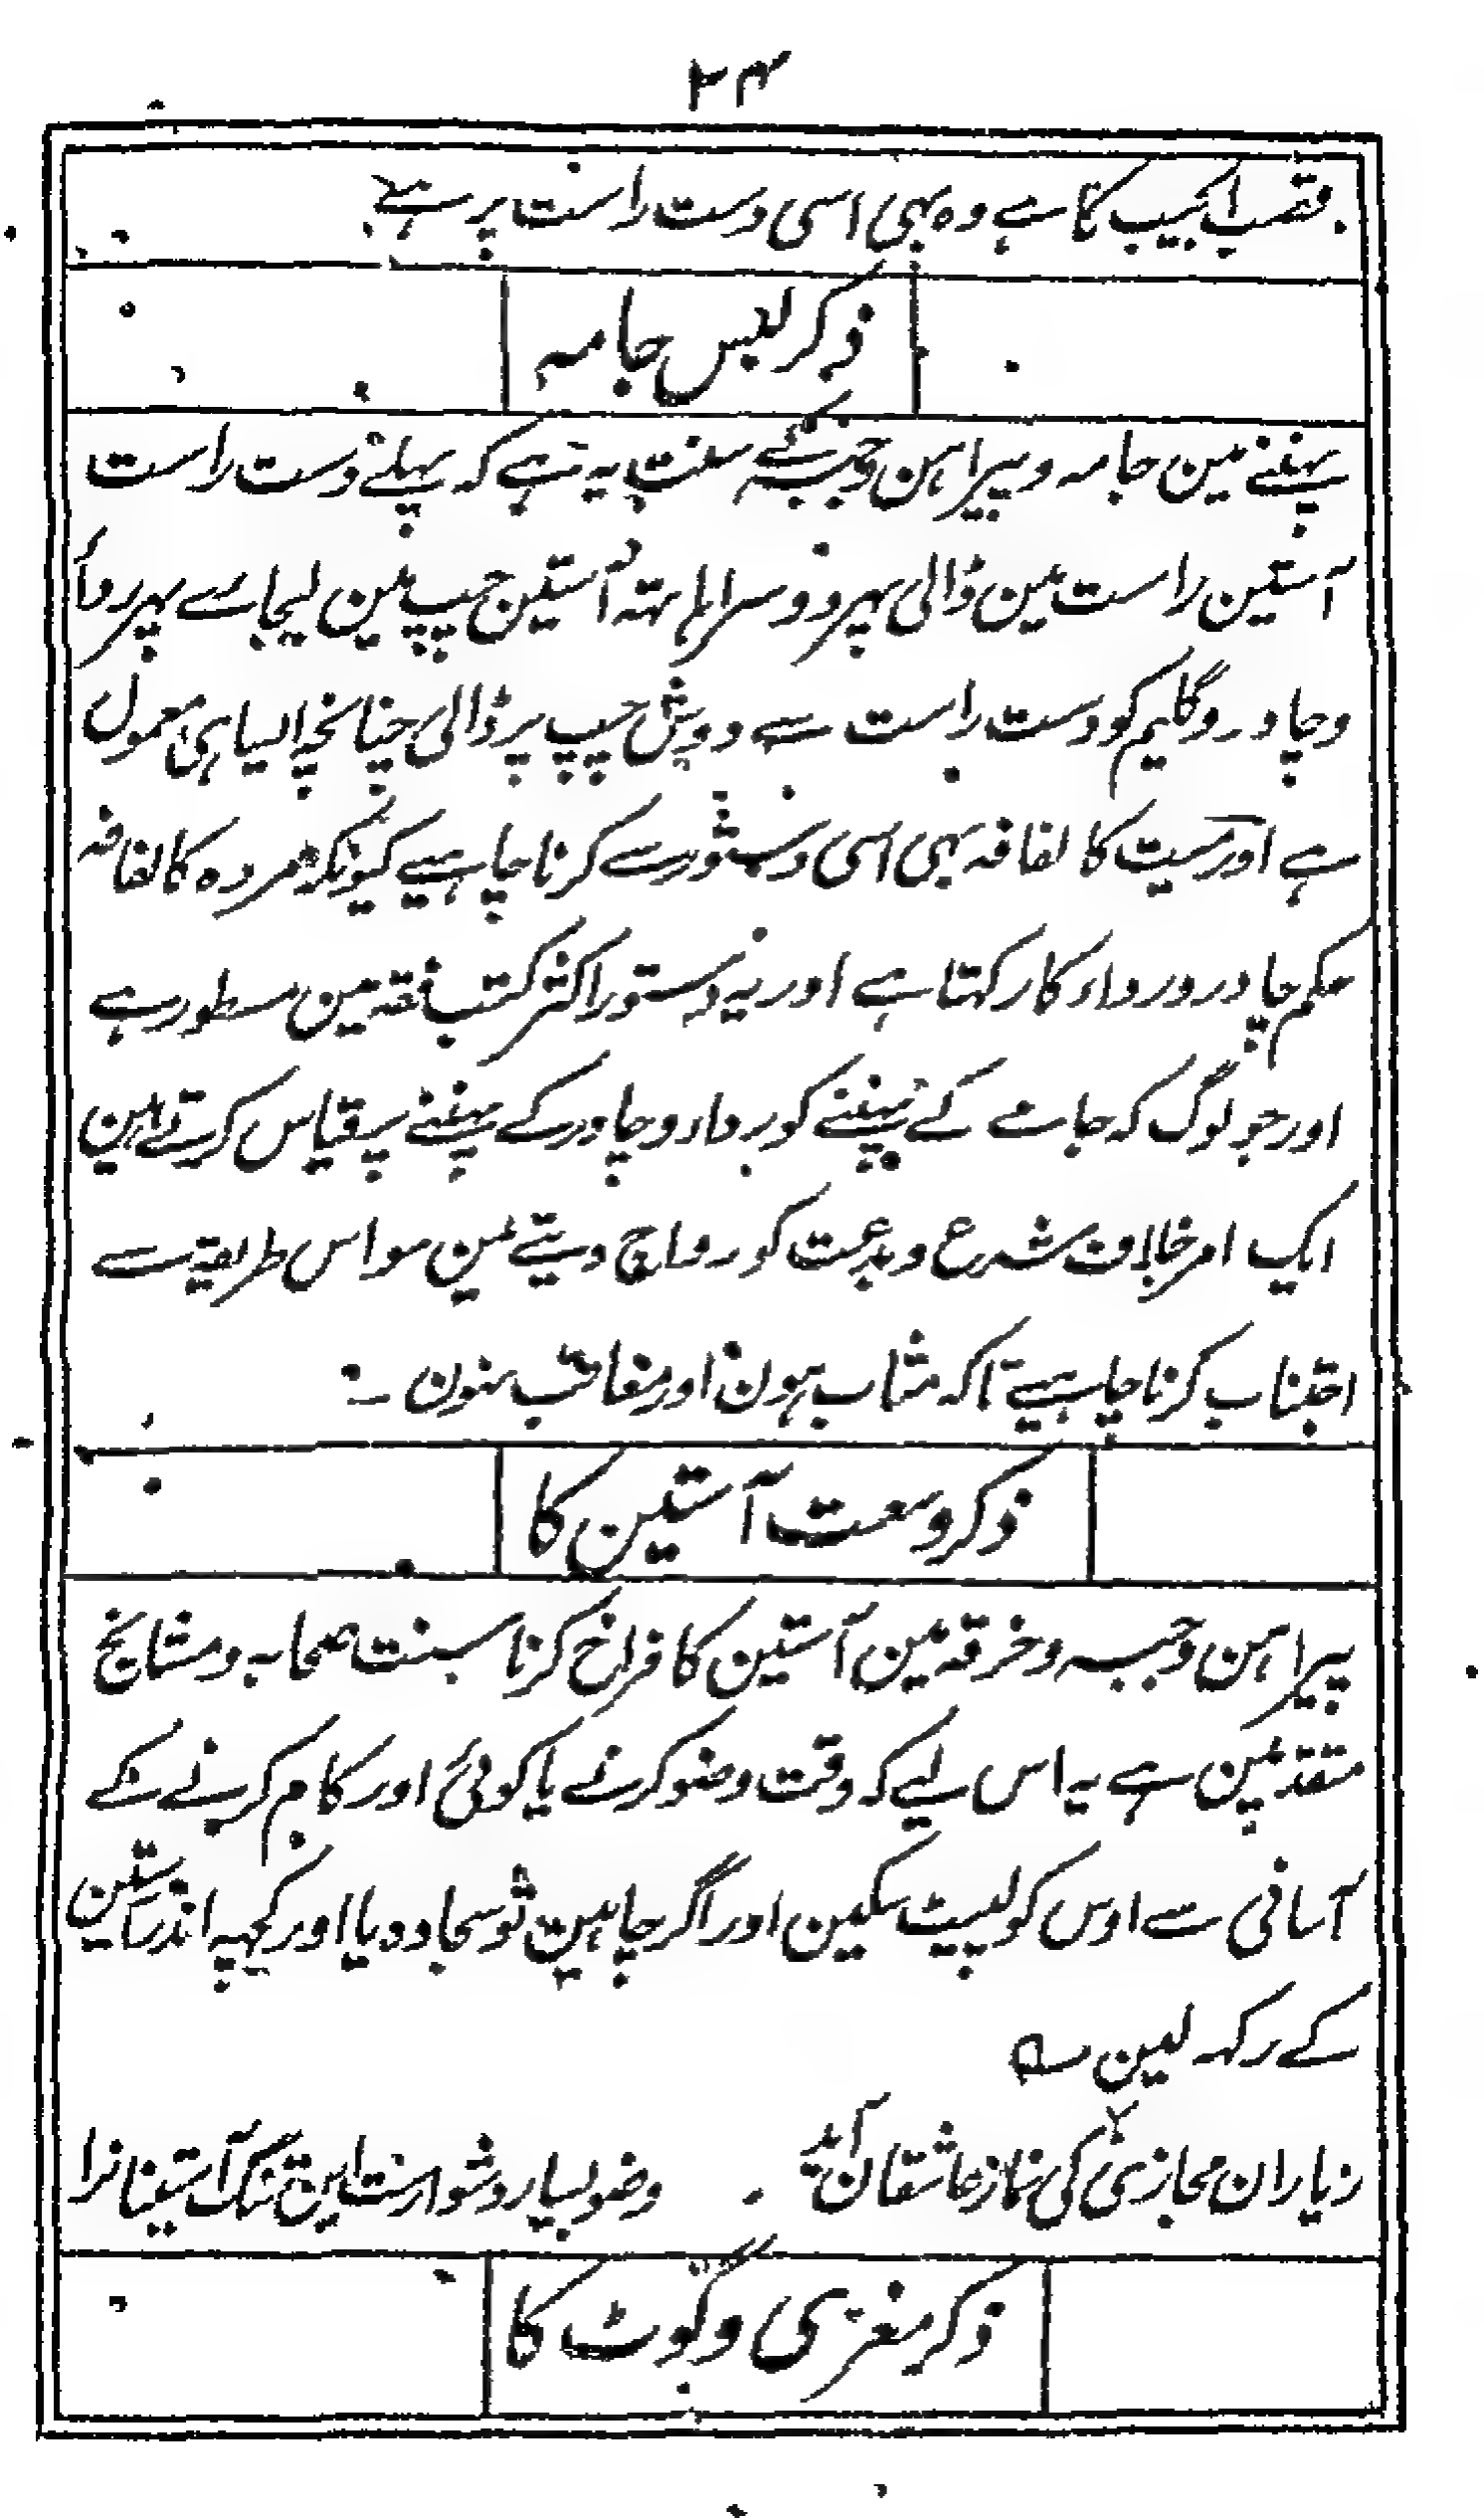 ۲۴
فقصب الجیب کا ہے وہ بہی اسی دست راست پر ہے
ذکر لبس جامہ
پہننے مین جامہ و پیراہن و جبہ کے سنت یہ ہے کہ پہلے دست راست
آستین راست مین ڈالی پہر دوسرا ہاتہہ آستین چپ مین لیجاے پہر رداء
وچادر وگلیم کو دست راست سے دوش چپ پر ڈالی چنانچہ ایسا ہی معمول
ہے اور میت کا لفافہ بہی اسی دستور سے کرنا چاہیے کیونکہ مردہ کا لفافہ
حکم چادر ورداء کا رکہتا ہے اور یہ دستور اکثر کتب فقہ مین مسطور ہے
اور جو لوگ کہ جامے کے پہننے کو رداء وچادر کے پہننے پر قیاس کرتے ہین
ایک امر خلاف شرع وبدعت کو رواج دیتے ہین سو اس طریقہ سے
اجتناب کرنا چاہیے تاکہ مثاب ہون اور معاقب نہون ۔
ذکر وسعت آستین کا
پیراہن وجبہ وخرقہ مین آستین کا فراخ کرنا سنت صحابہ ومشایخ
متقدمین ہے یہ اس لیے کہ وقت وضو کرنے یا کوئی اور کام کرنے کے
آسانی سے اوس کو لپیٹ سکین اور اگر چاہین تو سجادہ یا اور کچہہ اندر آستین
کے رکہہ لین ؎
زیاران مجازی کی نماز عاشقان آید وضو بسیار دشوارست این تنگ آستینانرا
ذکر مغزی وگوٹ کا